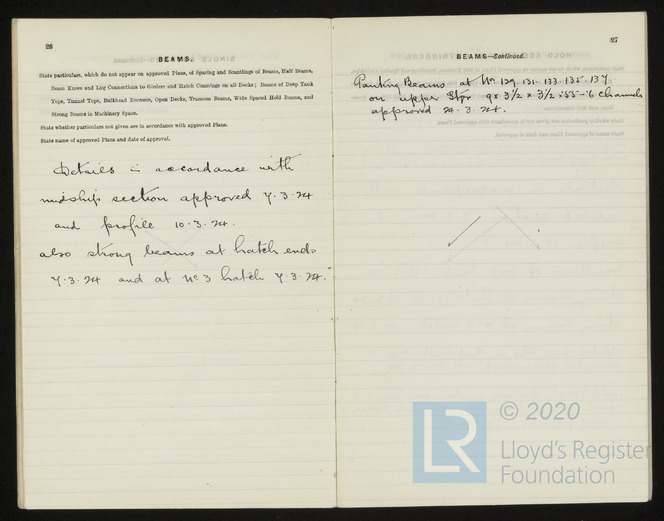 26
BEAMS.
State particulars, which do not appear on approved Plans, of Spacing and Scantlings of Beams, Half Beams,
Beam Knees and Lug Connections to Girders and Hatch Coamings on all Decks; Beams of Deep Tank
Tops, Tunnel Tops, Bulkhead Recesses, Open Decks, Transom Beams, Wide Spaced Hold Beams, and
Strong Beams in Machinery Space.
State whether particulars not given are in accordance with approved Plans.
State name of approved Plans and date of approval.
Details in accordance with
midship section approved 7.3.24
and profile 10.3.24.
also strong beams at hatch ends
7.3.24 and at No 3 hatch 7.3.24.
27
BEAMS—Continued.
Panting Beams at Nos 129. 131. 133. 135. 137
on upper Stgr 9 x 3 1/2 x 3 1/2 x .55-.6 channels
approved 24.3.24.
LR
© 2020
Lloyd's Register
Foundation